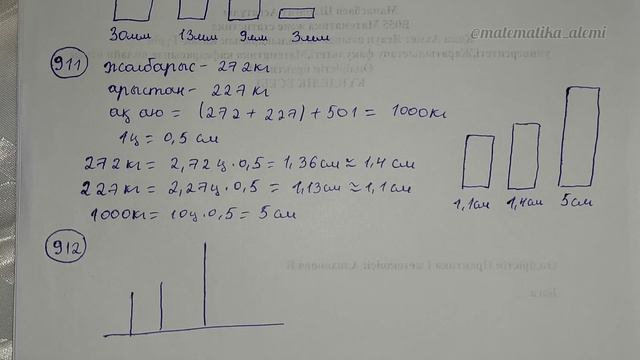 30мм 13мм 9мм 3мм
@matematika_alemi
911 жолбарыс - 272кг
арыстан - 227 кг
ақ аю = (272 + 227) + 501 = 1000кг
1ц = 0,5 см
272кг = 2,72ц · 0,5 = 1,36см ≈ 1,4 см
227кг = 2,27ц · 0,5 = 1,13см ≈ 1,1см
1000кг = 10ц · 0,5 = 5 см
1,1см 1,4см 5см
912